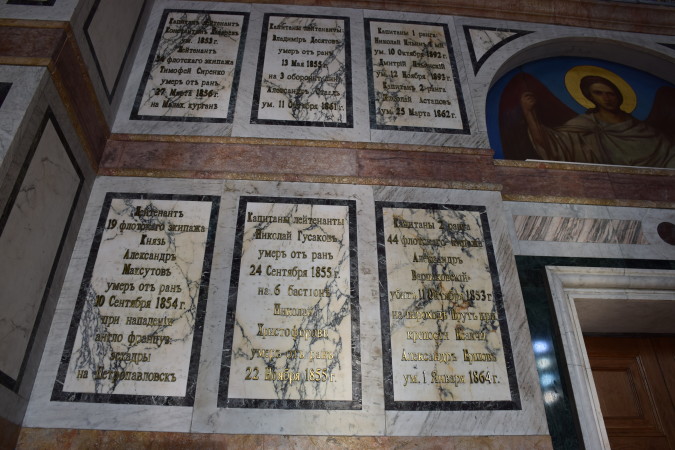 Капитанъ лейтенантъ
Константинъ
ум. 1853 г.
Лейтенантъ
флотскаго экипажа
Тимофей Сиренко
умеръ отъ ранъ
27 Марта 1856 г.
на Малах. курганѣ
Капитаны лейтенанты
Владиміръ
умеръ отъ ранъ
13 Мая 1855 г.
на 3
Александръ
ум. 11 Октября 1861 г.
Капитаны 1 ранга
Николай
ум. 10 Октября 1892 г.
Дмитрій
ум. 12 Ноября 1892 г.
Капитанъ 2 ранга
Астаповъ
ум. 25 Марта 1862 г.
Лейтенантъ
19 флотскаго экипажа
Князь
Александръ
Максутовъ
умеръ отъ ранъ
10 Сентября 1854 г.
при нападеніи
англо француз.
эскадры
на Петропавловскъ
Капитаны лейтенанты
Николай Гусаковъ
умеръ отъ ранъ
24 Сентября 1855 г.
на 6 бастіонѣ
Николай
Христофоровъ
умеръ отъ ранъ
22 Ноября 1855 г.
Капитаны 2 ранга
44 флотскаго экипажа
Александръ
убитъ 11 Октября 1853 г.
на пароходѣ Прутъ при
Александръ
ум. 1 Января 1864 г.